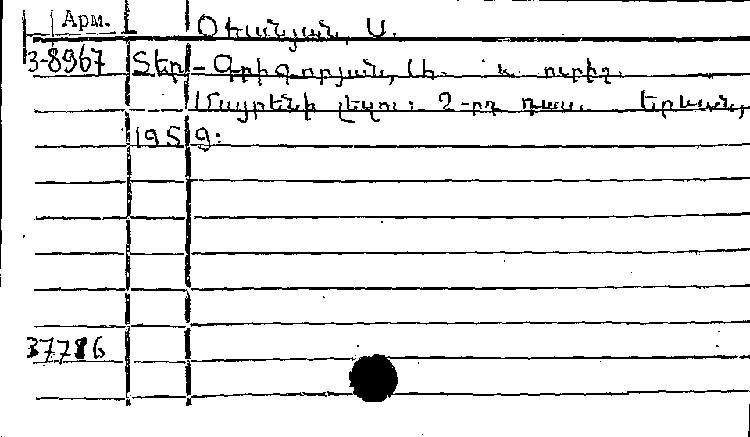 Арм.
Օհանյան, Ա.
3-8967 Տեր-Գրիգորյան, և ուրիշ.
Մայրենի լեզու: 2-րդ դաս. Երևան,
1959: